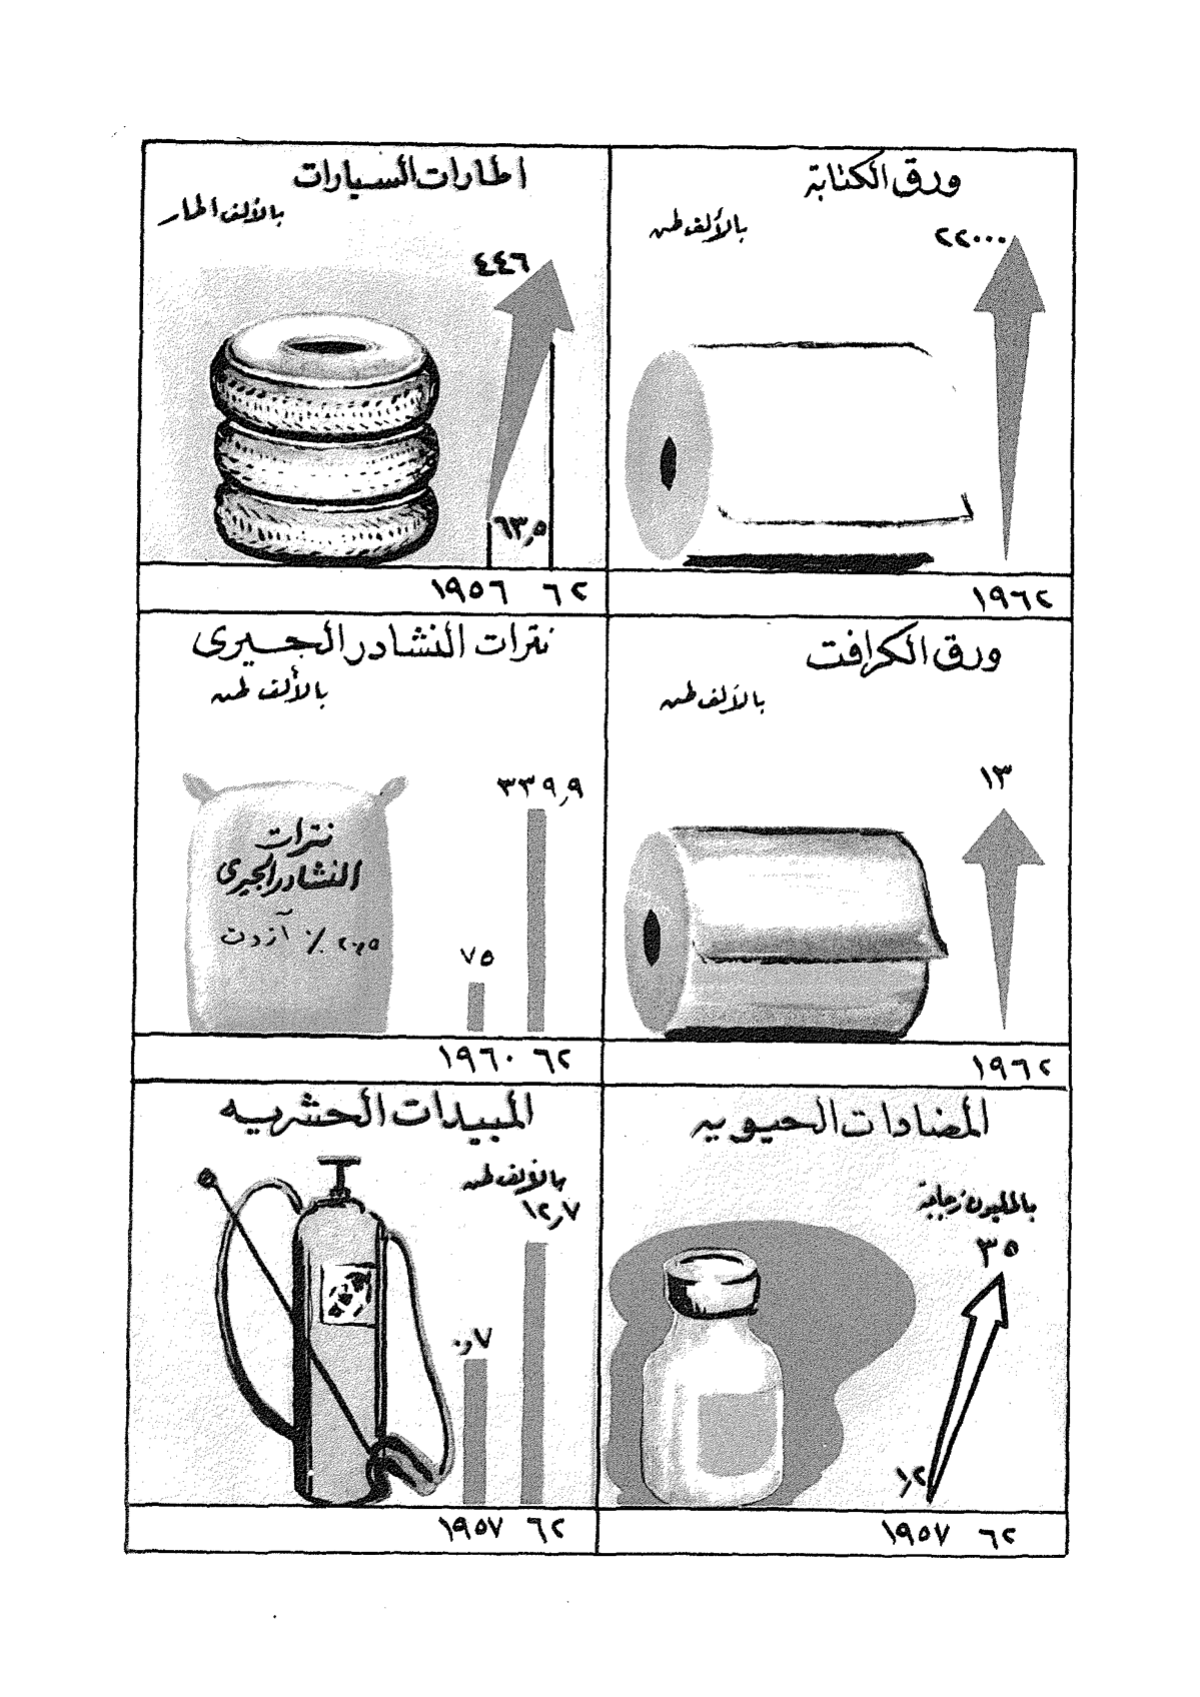 ورق الكتابة
بالألف طن
٢٢٠٠٠
١٩٦٢
اطارات السيارات
بالألف اطار
٤٤٦
٦٣,٥
١٩٥٦ ٦٢
ورق الكرافت
بالألف طن
١٣
١٩٦٢
نترات النشادر الجيرى
بالألف طن
٣٣٩,٩
٧٥
نترات
النشادر الجيرى
٢٠,٥ ٪ آزوت
١٩٦٠ ٦٢
المضادات الحيويه
بالمليون زجاجة
٣٥
١,٢
١٩٥٧ ٦٢
المبيدات الحشريه
بالألف طن
١٢,٧
٠,٧
١٩٥٧ ٦٢